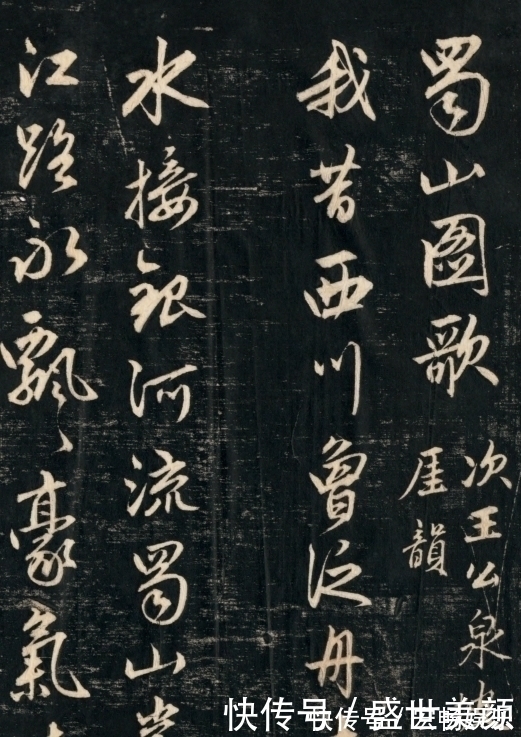 蜀山圖歌
次王公泉
厓韻
我昔西川曾泛舟
水接銀河流蜀山
江路永飄〻豪氣
快传号 / 盛世美颜
快传号